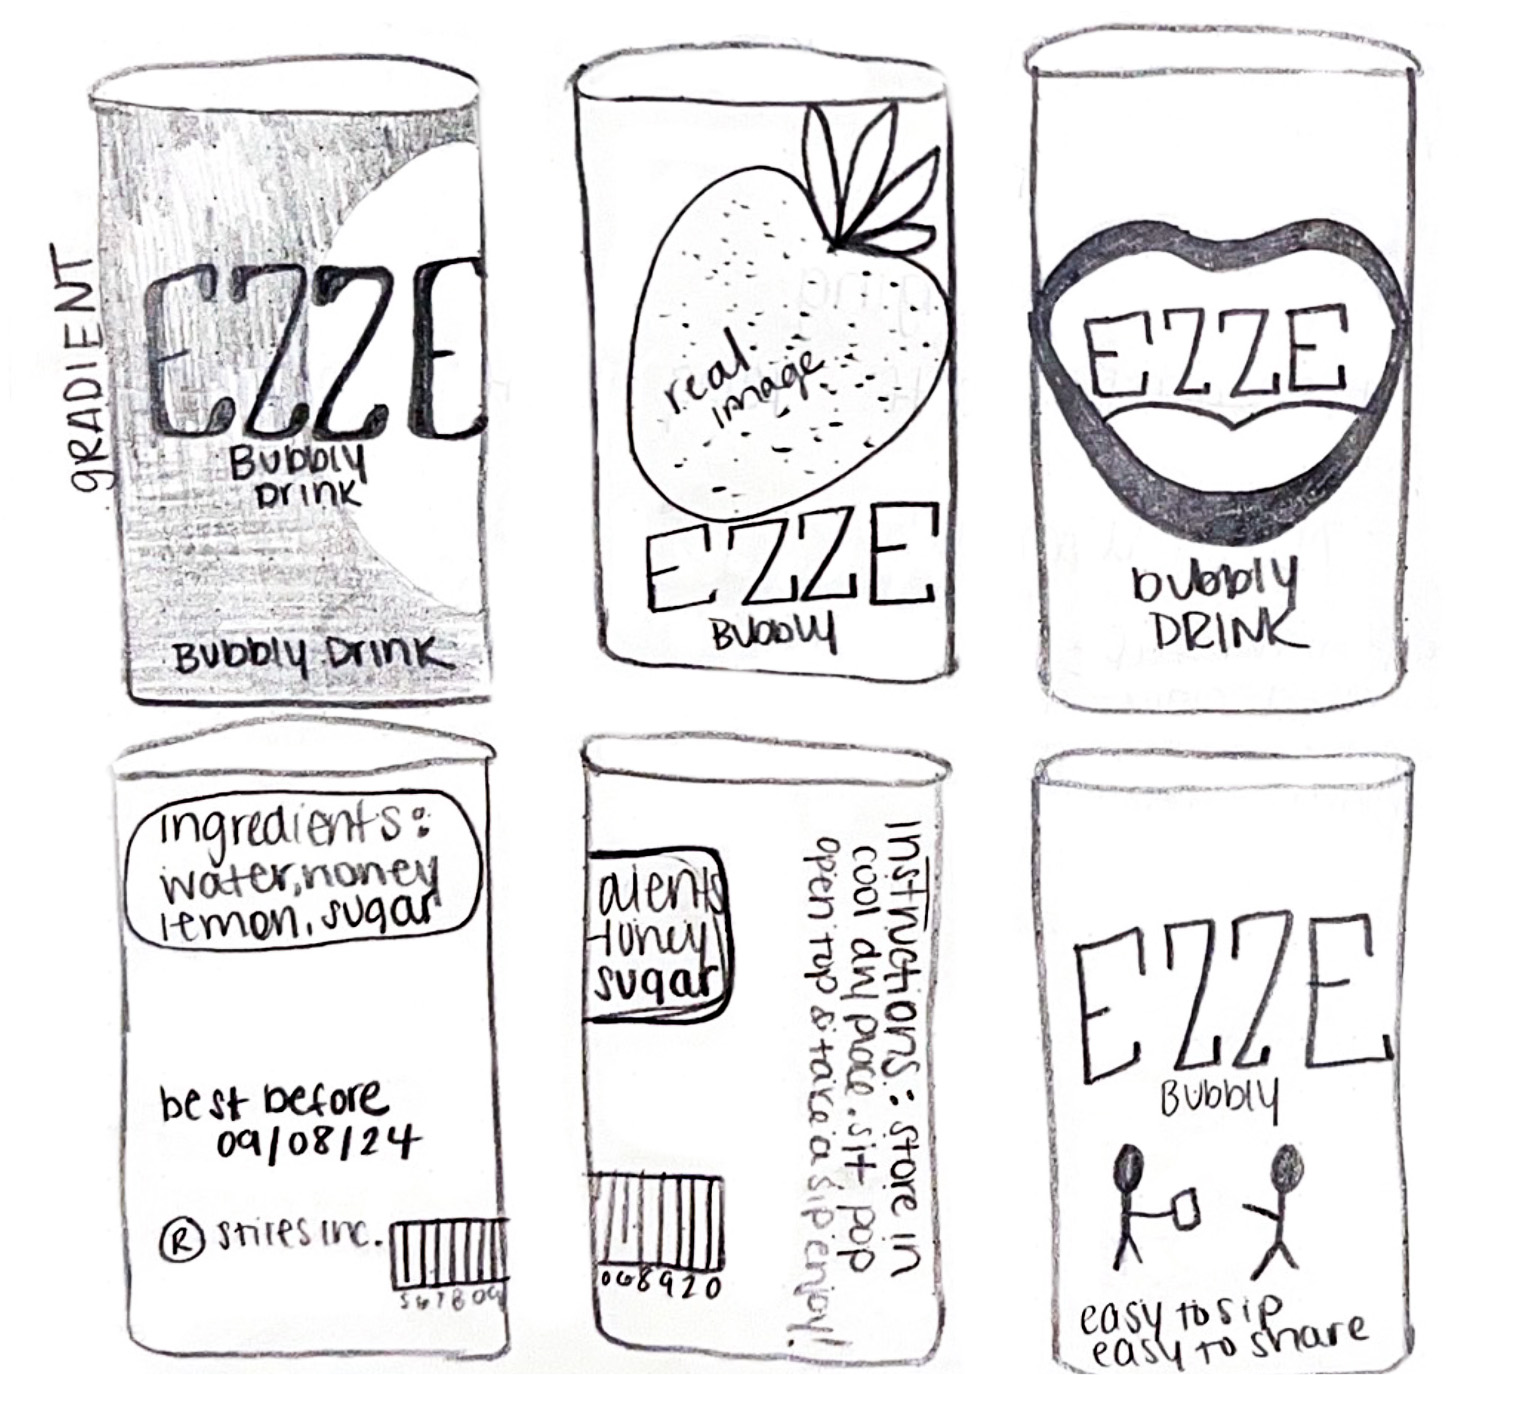 GRADIENT
EZZE
Bubbly
Drink
Bubbly Drink
real
image
EZZE
Bubbly
EZZE
bubbly
DRINK
ingredients:
water, honey
lemon, sugar
best before
09/08/24
® stiles inc.
dients
honey
sugar
068920
instructions: store in
cool dry place. sit pop
open top & take a sip enjoy!
EZZE
Bubbly
easy to sip
easy to share